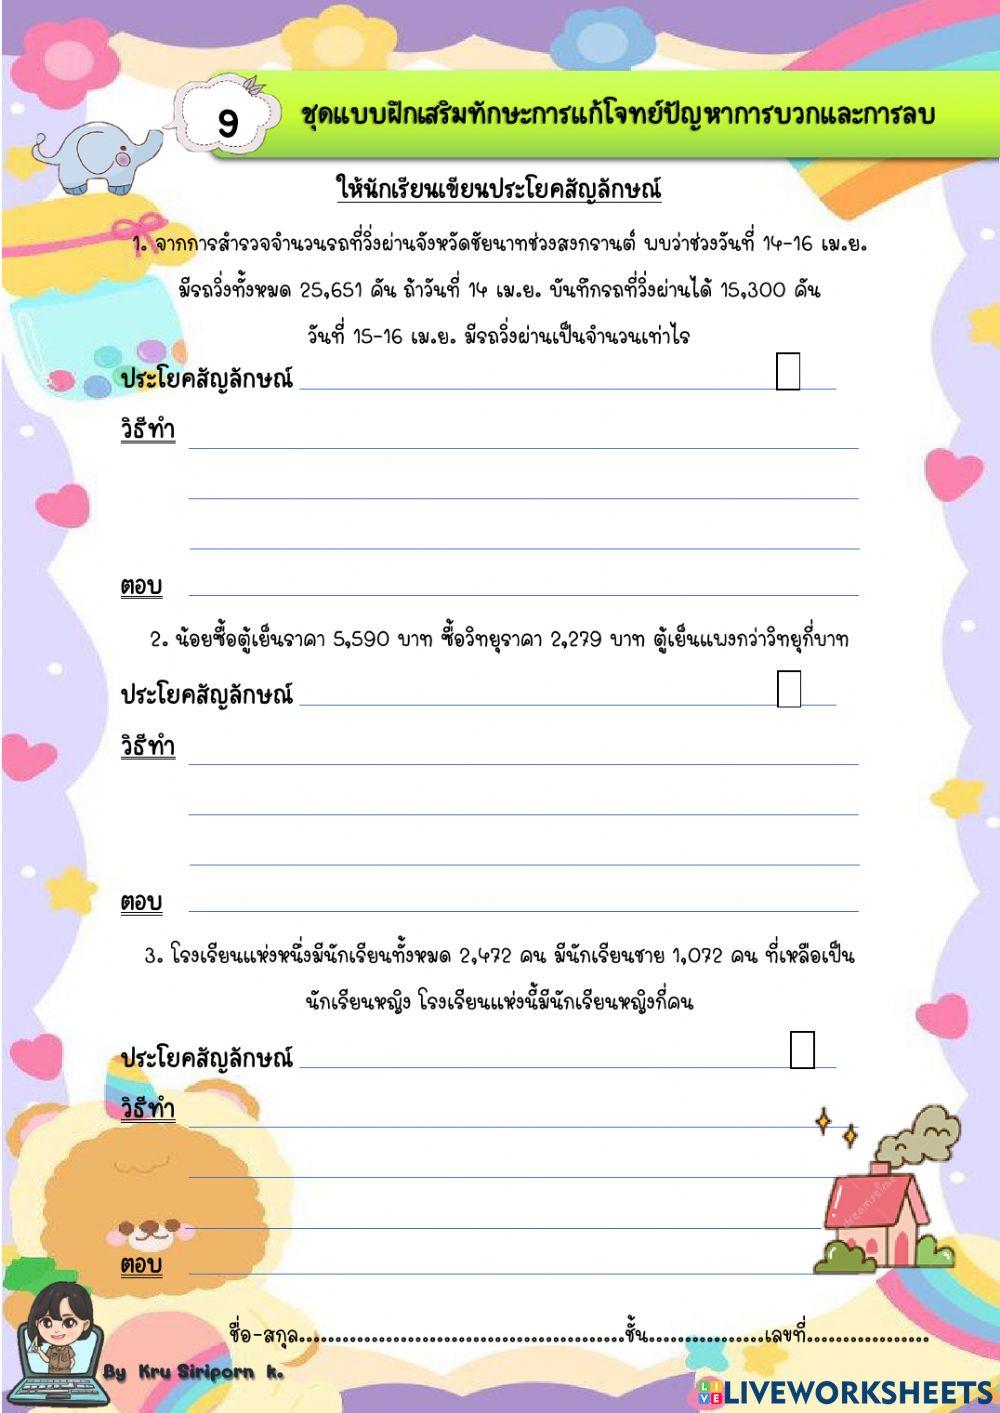 9
ชุดแบบฝึกเสริมทักษะการแก้โจทย์ปัญหาการบวกและการลบ
ให้นักเรียนเขียนประโยคสัญลักษณ์
1. จากการสำรวจจำนวนรถที่วิ่งผ่านจังหวัดชัยนาทช่วงสงกรานต์ พบว่าช่วงวันที่ 14-16 เม.ย.
มีรถวิ่งทั้งหมด 25,651 คัน ถ้าวันที่ 14 เม.ย. บันทึกรถที่วิ่งผ่านได้ 15,300 คัน
วันที่ 15-16 เม.ย. มีรถวิ่งผ่านเป็นจำนวนเท่าไร
ประโยคสัญลักษณ์
วิธีทำ
ตอบ
2. น้อยซื้อตู้เย็นราคา 5,590 บาท ซื้อวิทยุราคา 2,279 บาท ตู้เย็นแพงกว่าวิทยุกี่บาท
ประโยคสัญลักษณ์
วิธีทำ
ตอบ
3. โรงเรียนแห่งหนึ่งมีนักเรียนทั้งหมด 2,472 คน มีนักเรียนชาย 1,072 คน ที่เหลือเป็น
นักเรียนหญิง โรงเรียนแห่งนี้มีนักเรียนหญิงกี่คน
ประโยคสัญลักษณ์
วิธีทำ
ตอบ
ชื่อ-สกุล.............................................ชั้น................เลขที่.................
By Kru Siriporn k.
LIVE LIVEWORKSHEETS